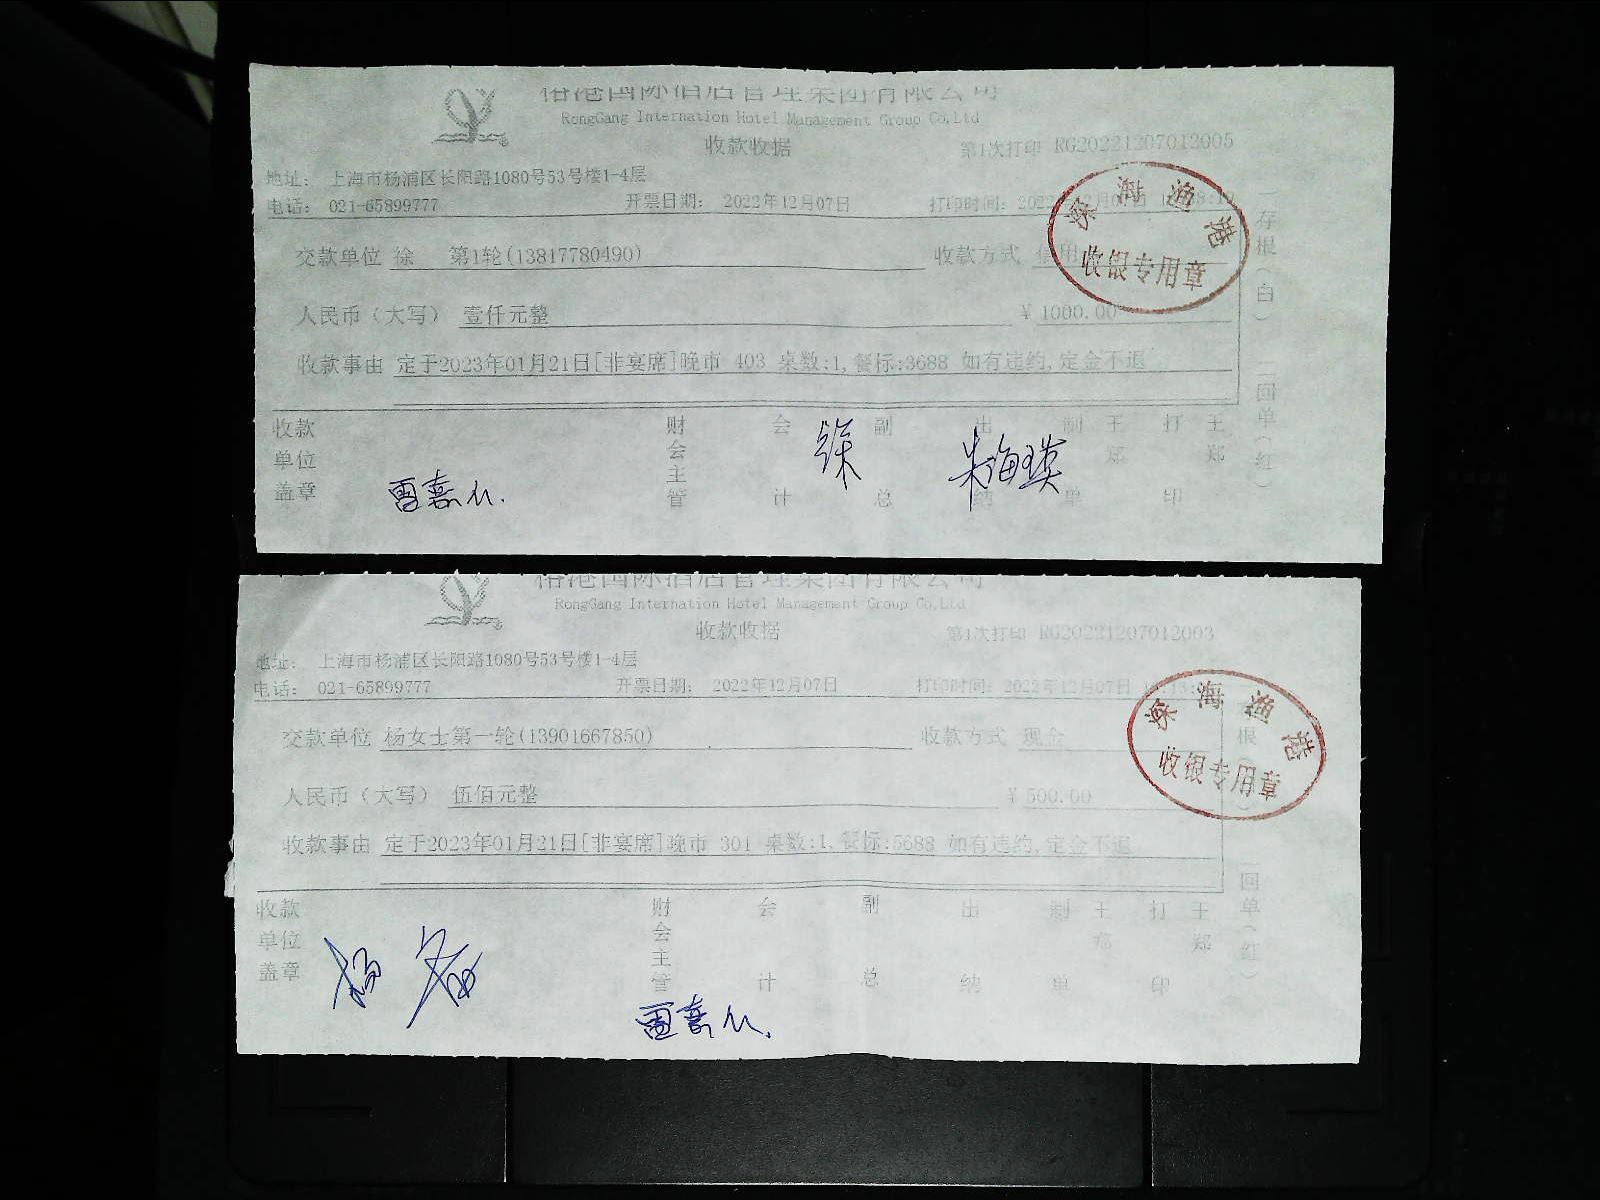 榕港国际酒店管理集团有限公司
RongGang Internation Hotel Management Group Co,Ltd
收款收据 第1次打印 RG20221207012005
地址： 上海市杨浦区长阳路1080号53号楼1-4层
电话： 021-65899777 开票日期： 2022年12月07日 打印时间：
深海渔港
收银专用章
交款单位 徐 第1轮(13817780490) 收款方式 信用
人民币（大写） 壹仟元整 ¥ 1000.00
收款事由 定于2023年01月21日[非宴席]晚市 403 桌数:1,餐标:3688 如有违约,定金不退
一存根（白） 二回单（红）
收款单位盖章 财会主管 会计 副总 出纳 制单 王郑 打印 王郑
徐 朱海瑛
榕港国际酒店管理集团有限公司
RongGang Internation Hotel Management Group Co,Ltd
收款收据 第1次打印 RG20221207012003
地址： 上海市杨浦区长阳路1080号53号楼1-4层
电话： 021-65899777 开票日期： 2022年12月07日 打印时间： 2022年12月07日
深海渔港
收银专用章
交款单位 杨女士第一轮(13901667850) 收款方式 现金
人民币（大写） 伍佰元整 ¥ 500.00
收款事由 定于2023年01月21日[非宴席]晚市 301 桌数:1,餐标:5688 如有违约,定金不退
根 二回单（红）
收款单位盖章 财会主管 会计 副总 出纳 制单 王郑 打印 王郑
杨